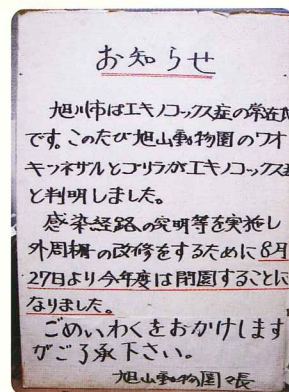 お知らせ
旭川市はエキノコックス症の常在
です。このたび旭山動物園のワオ
キツネザルとゴリラがエキノコックス
と判明しました。
感染経路の究明等を実施し
外周柵の改修をするために8月
27日より今年度は閉園することに
なりました。
ごめいわくをおかけします
がご了承下さい。
旭山動物園々長